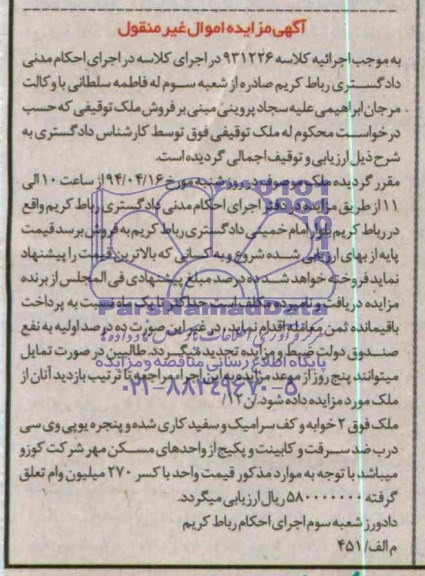 آگهی مزایده اموال غیر منقول
به موجب اجرائیه کلاسه ۹۳۱۲۲۶ در اجرای کلاسه در اجرای احکام مدنی
دادگستری رباط کریم صادره از شعبه سوم له فاطمه سلطانی با وکالت
مرجان ابراهیمی علیه سجاد پروینی مبنی بر فروش ملک توقیفی که حسب
درخواست محکوم له ملک توقیفی فوق توسط کارشناس دادگستری به
شرح ذیل ارزیابی و توقیف اجمالی گردیده است.
مقرر گردیده ملک موصوف در روز شنبه مورخ ۹۴/۰۴/۱۶ از ساعت ۱۰ الی
۱۱ از طریق مزایده در دفتر اجرای احکام مدنی دادگستری رباط کریم واقع
در رباط کریم بلوار امام خمینی دادگستری رباط کریم به فروش برسد قیمت
پایه از بهای ارزیابی شده شروع و به کسانی که بالاترین قیمت را پیشنهاد
نماید فروخته خواهد شد ده درصد مبلغ پیشنهادی فی المجلس از برنده
مزایده دریافت و نامبرده مکلف است حداکثر تا یک ماه نسبت به پرداخت
ParsNamadData
باقیمانده ثمن معامله اقدام نماید، در غیر این صورت ده درصد اولیه به نفع
صندوق دولت ضبط و مزایده تجدید میگردد. طالبین در صورت تمایل
پایگاه اطلاع رسانی مناقصه و مزایده
میتوانند پنج روز از موعد مزایده به این اجرا مراجعه تا ترتیب بازدید آنان از
۰۲۱-۸۸۳۴۹۶۷۰-۵
ملک مورد مزایده داده شود. ن/۱۲
ملک فوق ۲ خوابه و کف سرامیک و سفید کاری شده و پنجره یو پی وی سی
درب ضد سرقت و کابینت و پکیج از واحدهای مسکن مهر شرکت کوزو
میباشد با توجه به موارد مذکور قیمت واحد با کسر ۲۷۰ میلیون وام تعلق
گرفته ۵۸۰۰۰۰۰۰۰ ریال ارزیابی میگردد.
دادورز شعبه سوم اجرای احکام رباط کریم
م الف/۴۵۱